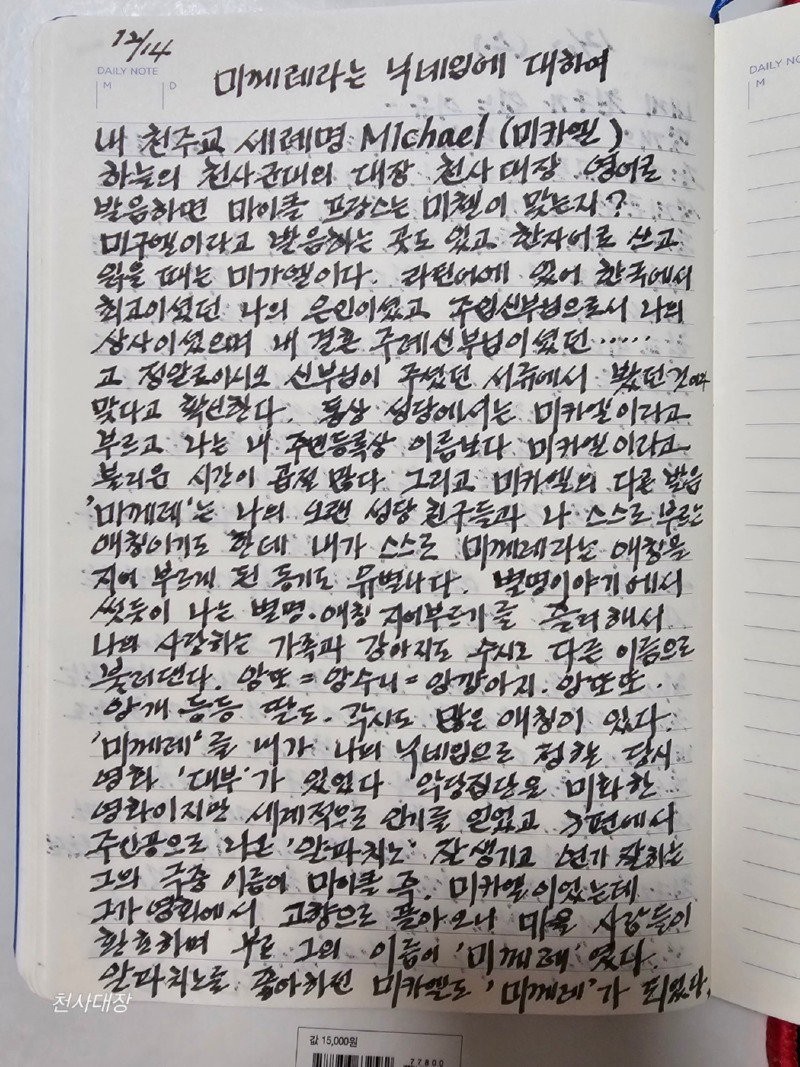 12/14
DAILY NOTE
M D
미께레라는 닉네임에 대하여
내 천주교 세례명 Michael (미카엘)
하늘의 천사군대의 대장 천사대장 영어로
발음하면 마이클 프랑스는 미첼이 맞는지?
미구엘이라고 발음하는 곳도 있고 한자어로 쓰고
읽을 때는 미가엘이다. 라틴어에 있어 한국에서
최고이셨던 나의 은인이셨고 주임신부님으로서 나의
상사이셨으며 내 결혼 주례신부님이셨던……
고 정알로이시오 신부님이 주셨던 서류에서 봤던 것이다
맞다고 확신한다. 통상 성당에서는 미카엘이라고
부르고 나는 내 주민등록상 이름보다 미카엘이라고
불리운 시간이 곱절 많다 그리고 미카엘의 다른 발음
'미께레'는 나의 오랜 성당 친구들과 나 스스로 부르는
애칭이기도 한데 내가 스스로 미께레라는 애칭을
지어 부르게 된 동기도 유별나다. 별명이야기에서
썼듯이 나는 별명·애칭 지어부르기를 즐겨해서
나의 사랑하는 가족과 강아지도 수시로 다른 이름으로
불러댄다. 앙또 = 앙수니 = 앙강아지. 앙또또.
앙개 등등 딸도. 각시도 많은 애칭이 있다.
'미께레'를 내가 나의 닉네임으로 정할 당시
영화 '대부'가 있었다 악당집단을 미화한
영화이지만 세계적으로 인기를 얻었고 3편에서
주인공으로 나온 '알파치노' 잘생기고 연기 잘하는
그의 극중 이름이 마이클 즉. 미카엘이었는데
그가 영화에서 고향으로 돌아오니 마을 사람들이
환호하며 부른 그의 이름이 '미께레'였다.
알파치노를 좋아하던 미카엘도 '미께레'가 되었다.
천사대장
DAILY NO
M
값 15,000원
77800